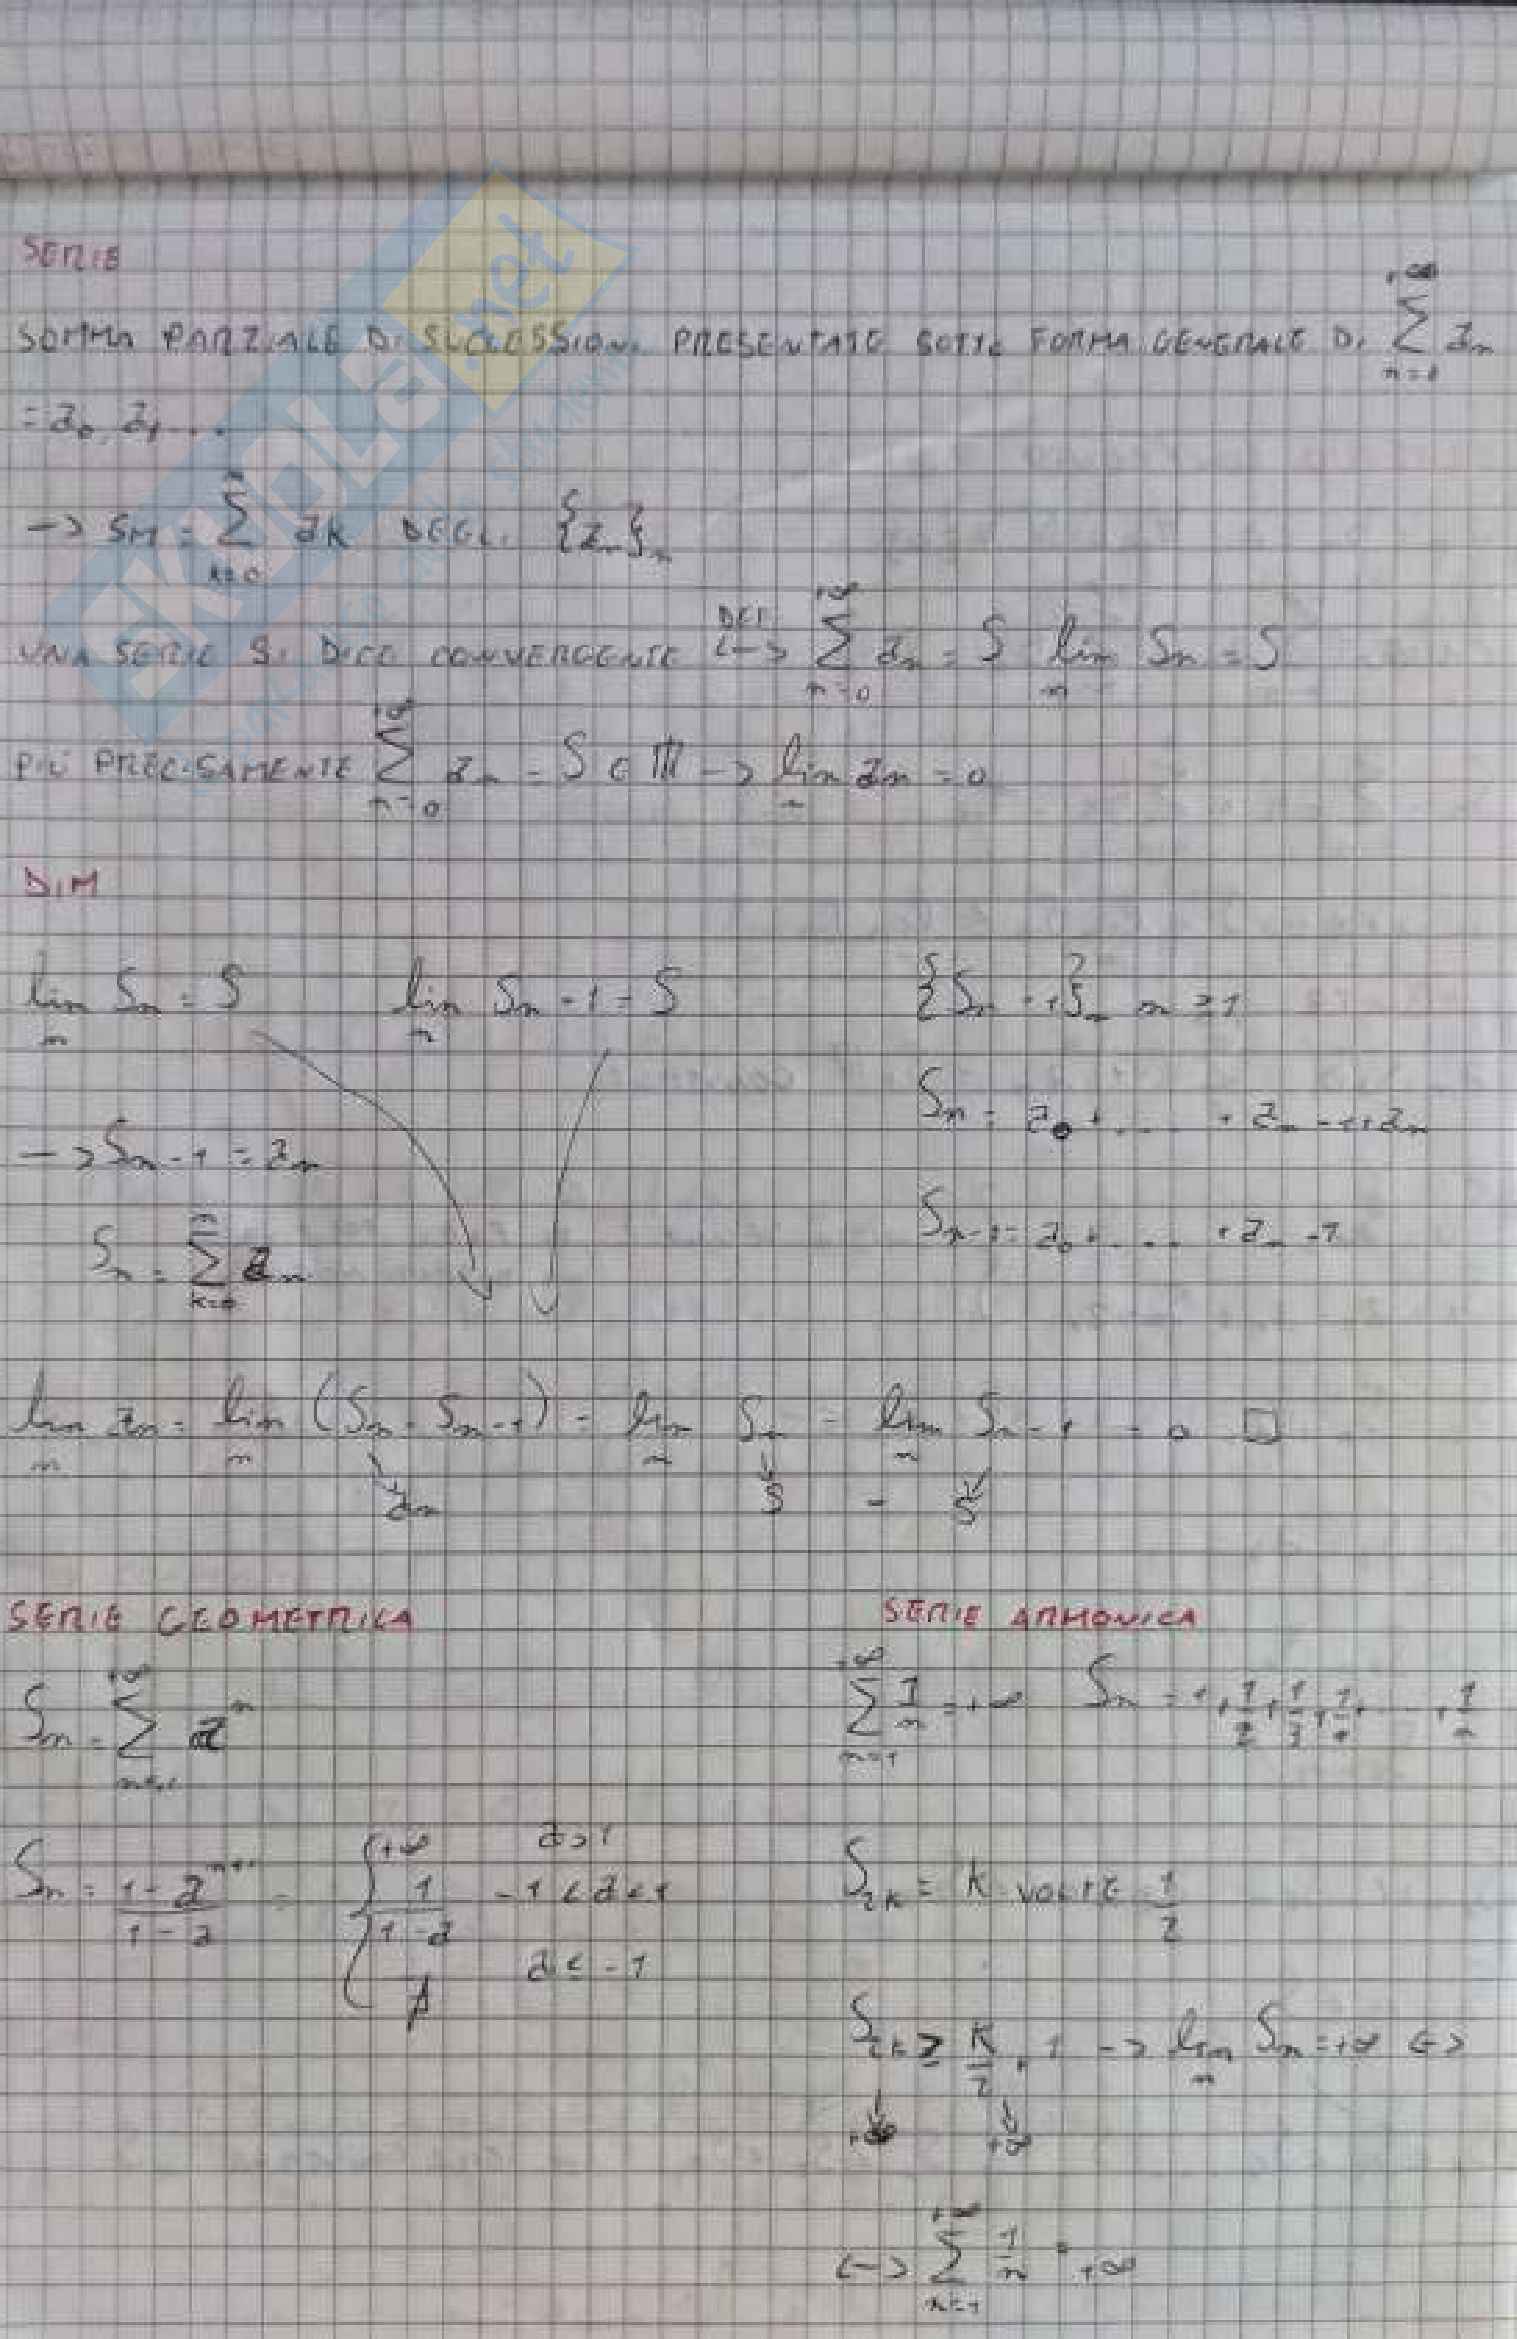 SERIE
SOMMA PARZIALE DI SUCCESSIONI PRESENTATE SOTTO FORMA GENERALE DI +∞ ∑ n=0 an
= a0, a1 ...
-> SM = n ∑ k=0 ak DEGLI {an}n
UNA SERIE SI DICE CONVERGENTE DEF <-> +∞ ∑ n=0 an = S lim n Sn = S
PIÙ PRECISAMENTE +∞ ∑ n=0 an = S ∈ ℝ -> lim n an = 0
DIM
lim n Sn = S lim n Sn-1 = S {Sn-1}n n ≥ 1
Sn = a0 + .... + an-1 + an
-> Sn-1 = an
Sn-1 = a0 + .... + an-1
Sn = n ∑ k=0 an
lim n an = lim n (Sn - Sn-1) = lim n Sn = lim n Sn-1 = 0 □
an S - S
SERIE GEOMETRICA SERIE ARMONICA
Sn = +∞ ∑ an +∞ ∑ n=1 1/n = +∞ Sn = 1 + 1/2 + 1/3 + 1/4 + .... + 1/n
Sn = 1 - a^n+1 / 1 - a = { +∞ a > 1
1 / 1 - a -1 < a < 1
∄ a ≤ -1
S2k = K VOLTE 1/2
S2k ≥ K/2 + 1 -> lim n Sn = +∞ <->
+∞ +∞
<-> +∞ ∑ n=1 1/n = +∞
SKUOLA.net